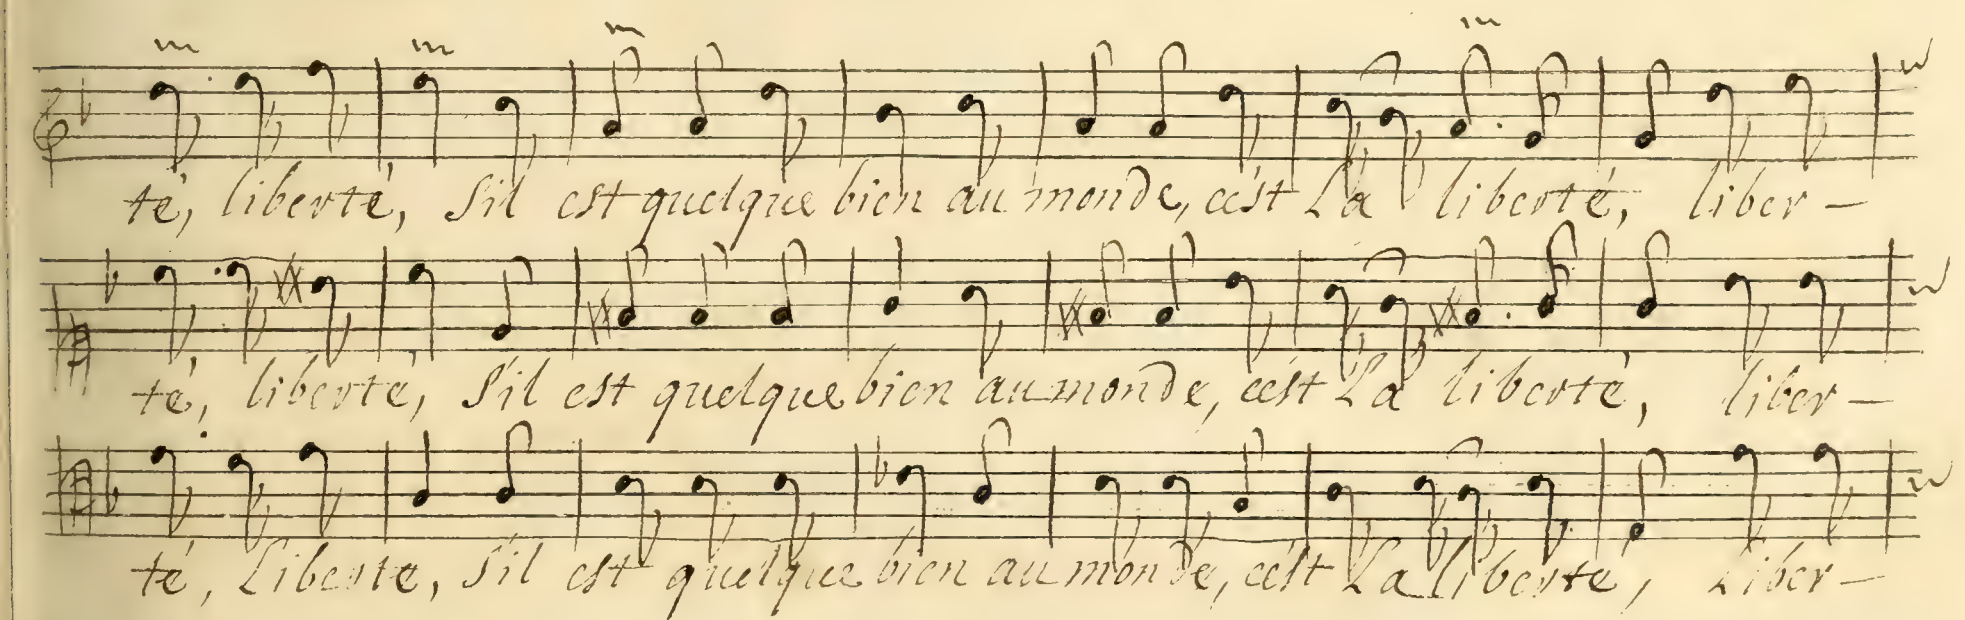 té, liberté, S'il est quelque bien au monde, c'est La liberté, liber-
té, liberté, S'il est quelque bien au monde, c'est La liberté, liber-
té, Liberte, S'il est quelque bien au monde, c'est La liberté, Liber-